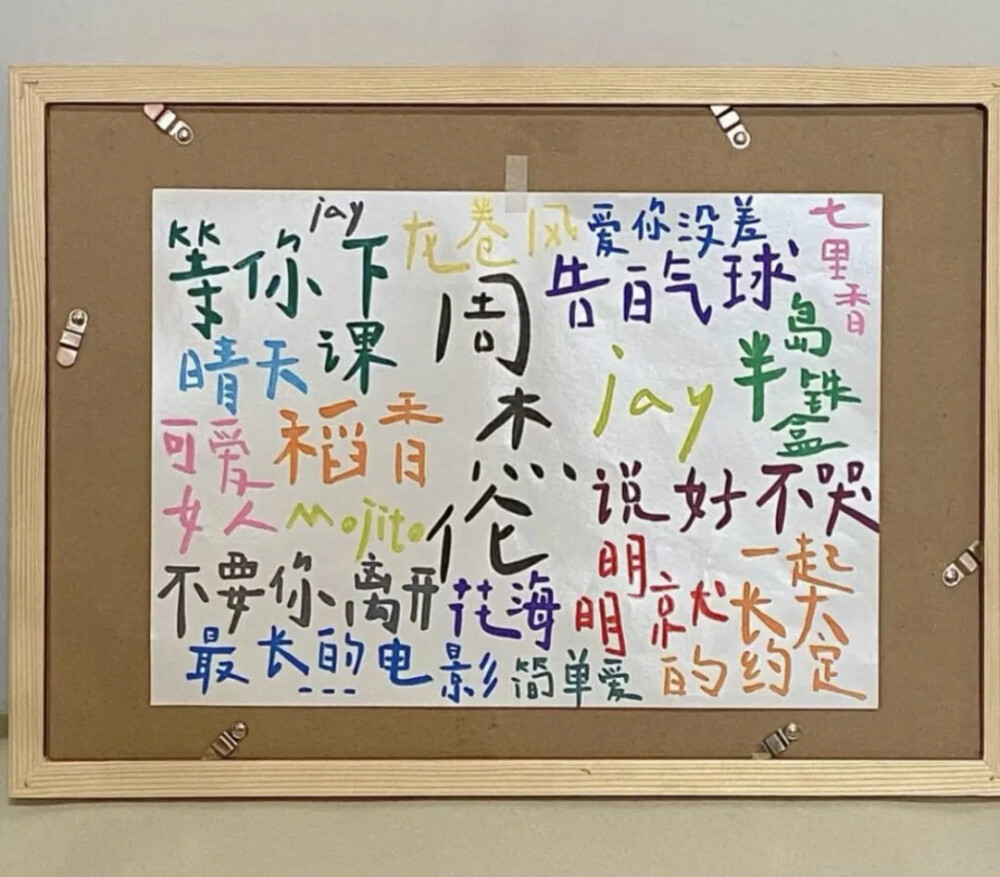 jay
等你下课
龙卷风
爱你没差
七里香
告白气球
周杰伦
晴天
jay
半岛铁盒
可爱女人
稻香
说好不哭
Mojito
不要你离开
花海
明明就
一起
长大
的约定
最长的电影
简单爱